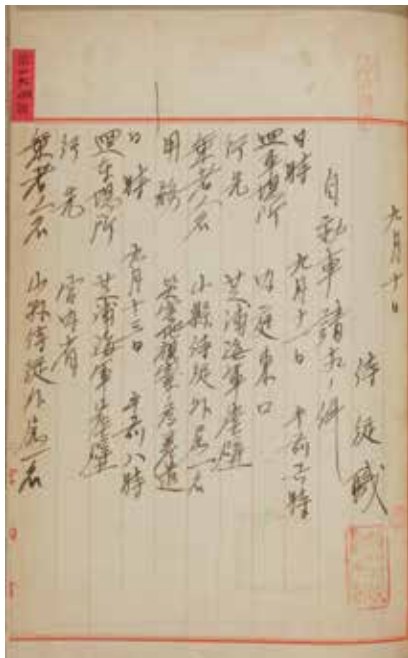 九月十日
侍従職
自動車請求ノ件
日時　九月十一日　午前　時
廻車場所　内庭東口
行先　芝浦海軍岸壁
乗者人名　小縣侍従外属一名
用務　差遣
日時　九月十三日　午前八時
廻車場所　芝浦海軍岸壁
行先　宮内省
乗者人名　山縣侍従外属一名